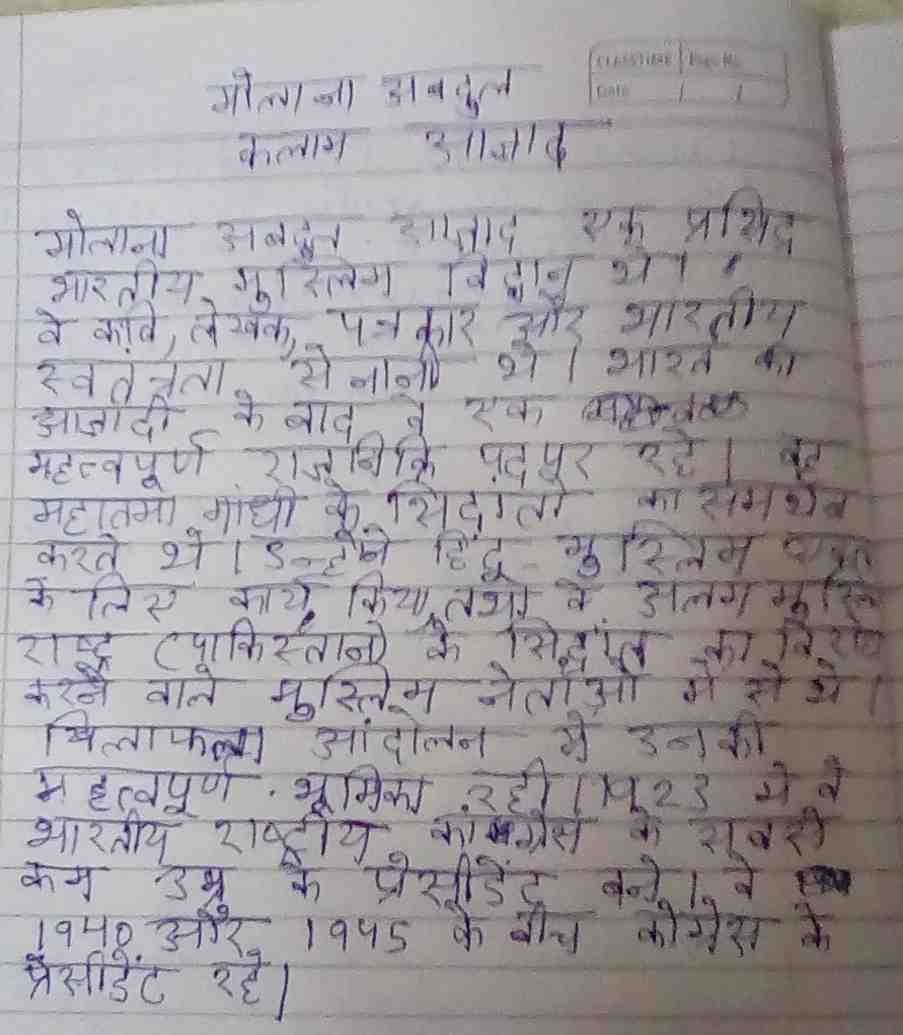 मौलाना अबदुल
CLASSTIME Page No.
Date / /
कलाम आज़ाद
मोलाना अबदुल आज़ाद एक प्रशिद
भारतीय मुस्लिम विद्वान थे।
वे कवि, लेखक, पत्रकार और भारतीय
स्वतंत्रता सेनानी थे। भारत की
आजादी के बाद वे एक
महत्वपूर्ण राजनिति पदपर रहे। वह
महातमा गांधी के सिदांतो का समर्थन
करते थे। उन्होंने हिंदू-मुस्लिम
के लिए कार्य किया, तथा वे अलग मुस्लि
राष्ट्र (पाकिस्तान) के सिद्धांत का विरोध
करने वाले मुस्लिम नेताओ में से थे।
आंदोलन में उनकी
महत्वपूर्ण भूमिका रही। 1923 मे वे
भारतीय राष्ट्रीय कांग्रेस के सबसे
कम उम्र के प्रेसीडेंट बने। वे
1940 और 1945 के बीच कांग्रेस के
प्रेसीडेंट रहे।